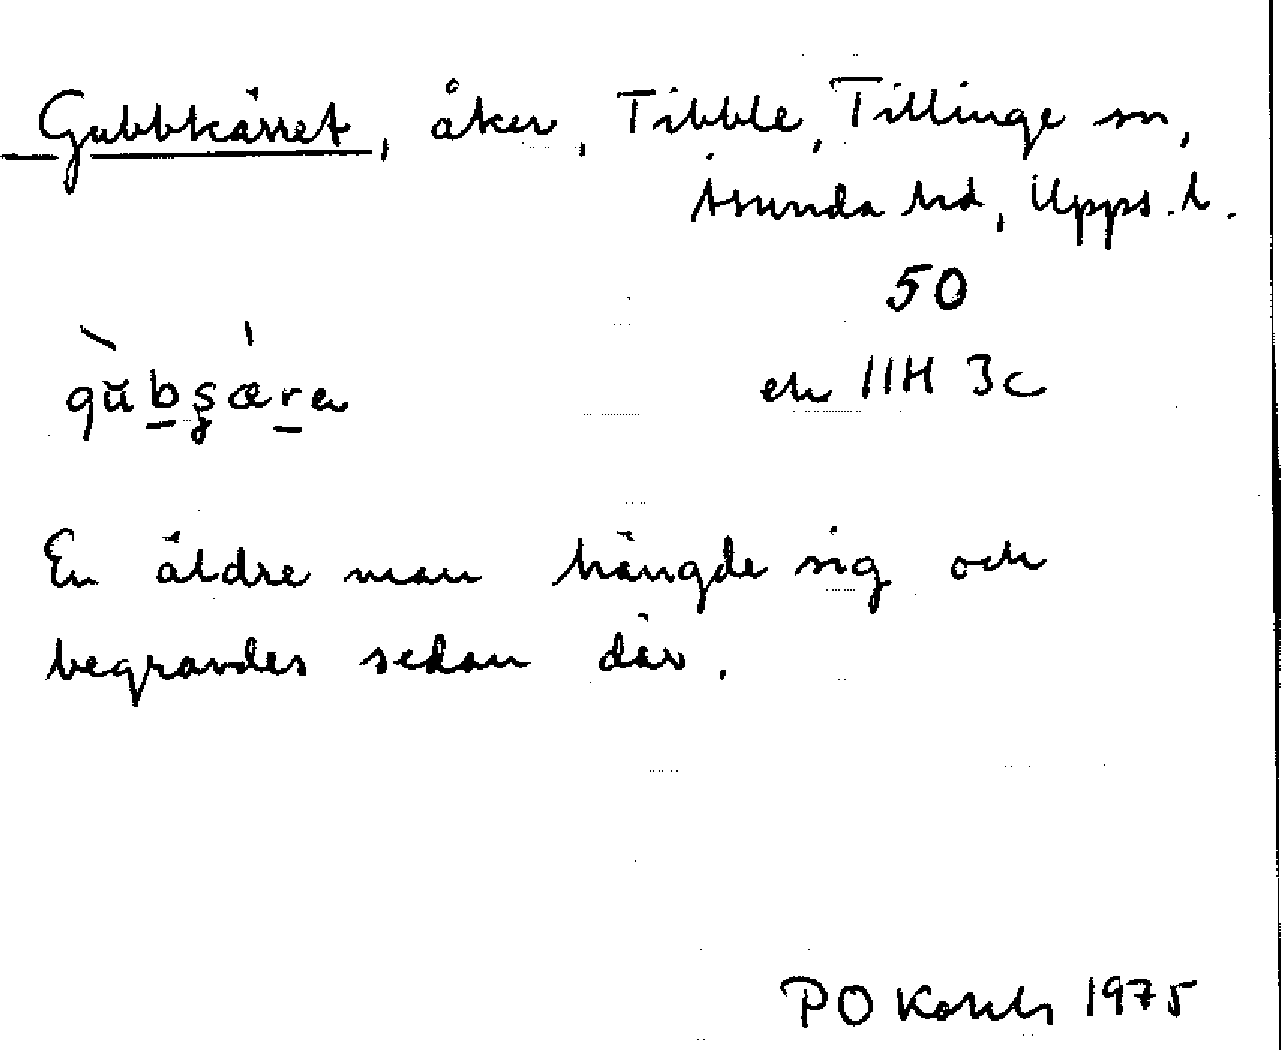 Gubbkärret, åker, Tibble, Tillinge sn,
Åsunda hd, Upps. l.
50
gŭbşæra ek 11H 3c
En äldre man hängde sig och
begravdes sedan där.
PO 1975